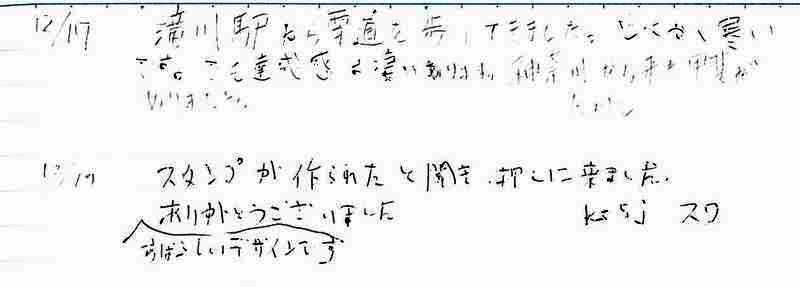 12/17 滝川駅から雪道を歩いてきました。とにかく寒い
です。でも達成感は凄いあります。神奈川から来た甲斐が
ありました。
12/19 スタンプが作られたと聞き、押しに来ました。
ありがとうございました
すばらしいデザインです